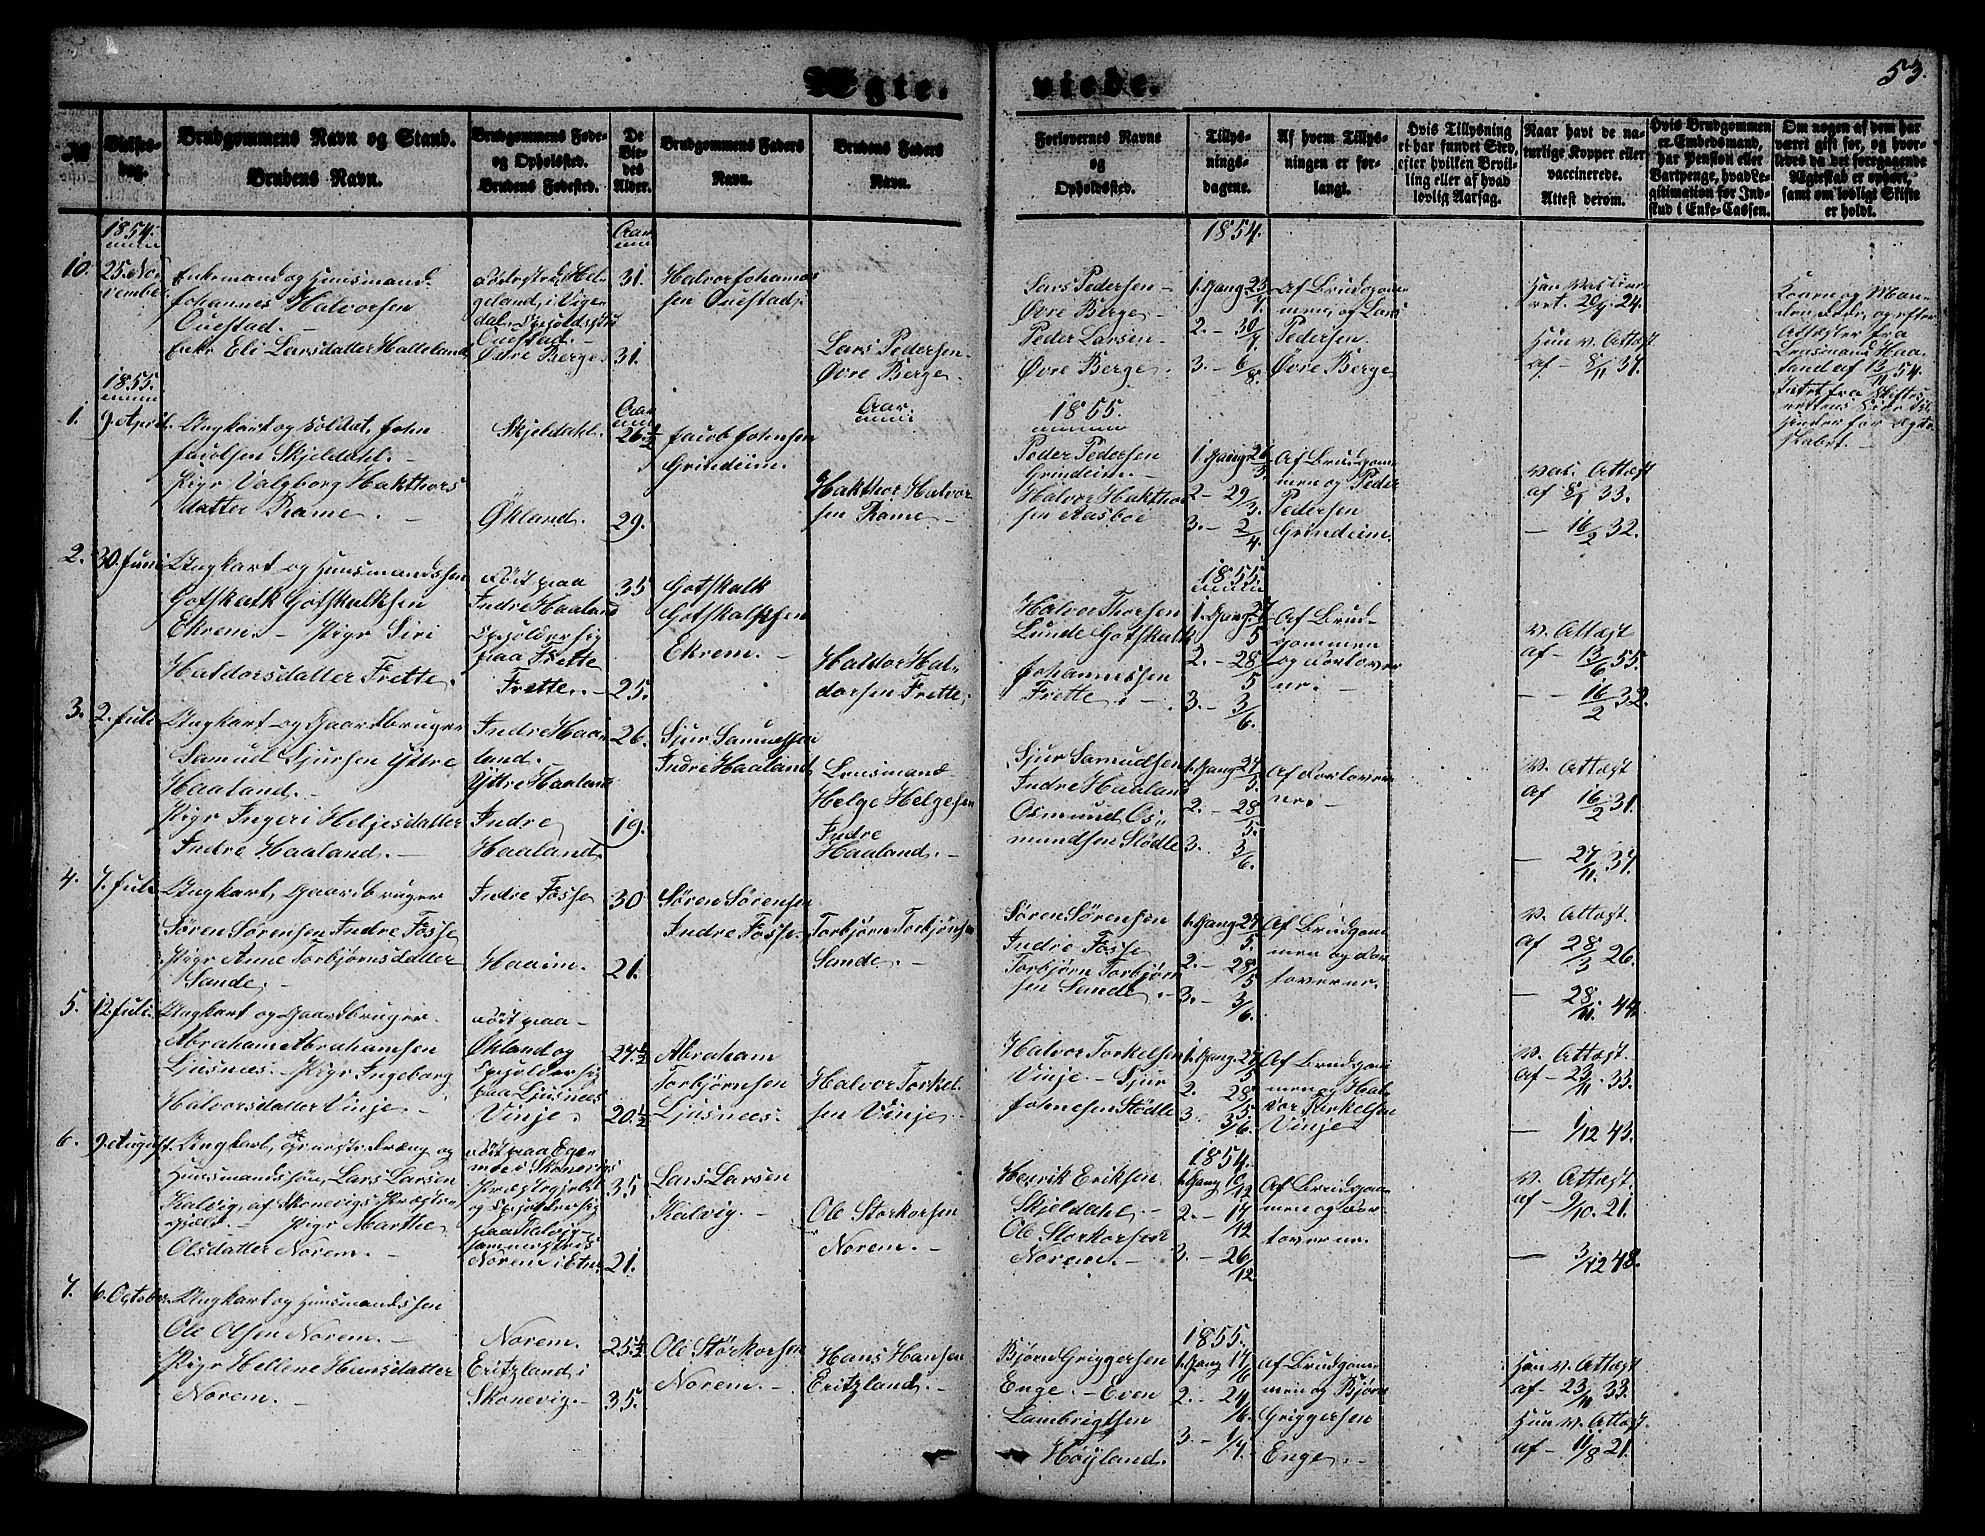 Ægte-
viede.
53.
No
Vielses-
dag.
Brudgommens Navn og Stand.
Brudens Navn.
Brudgommens Føde-
og Opholdsted.
Brudens Fødested.
De
Vie-
des
Alder.
Brudgommens Faders
Navn.
Brudens Faders
Navn.
Forlovernes Navne
og
Opholdssted.
Tillys-
nings-
dagene.
Af hvem Tillys-
ningen er for-
langt.
Hvis Tillysning
ei har fundet Sted,
efter hvilken Bevil-
ling eller af hvad
lovlig Aarsag.
Naar havt de na-
turlige Kopper eller
vaccinerede.
Attest derom.
Hvis Brudgommen
er Embedsmand,
har Pension eller
Vartpenge, hvad Le-
gitimation for Ind-
skud i Enke-Cassen.
Om nogen af dem har
været gift før, og hvor-
ledes da det foregaaende
Ægteskab er ophørt,
samt om lovligt Skifte
er holdt.
1854.
10. 25. No
vember
Enkemand og Huusmand
Johannes Halvorsen
Ouestad. -
Enke Eli Larsdatter Halleland
geland, i Viger
Ouestad. -
Øvre Berge
Aar
31.
31.
Halvor Johannes
sen Ouestad.
Lars Pedersen
Øvre Berge.
Lars Pedersen -
Øvre Berge -
Peder Larsen -
Øvre Berge. -
1854.
1. Gang 23/7
2. - 30/7
3. - 6/8.
Af Brudgom
men, af Lars
Pedersen
Øvre Berge
Han vaccine
ret. 24.
Hun v. Attest
af - 8/11 37.
og efter
Attester fra
Lensmand Haa
land af 13/11 54.
1855.
1. 9. April.
Ungkarl og Soldat, John
Jacobsen Skjeldahl. -
Pige Valgborg Hakthors
datter Rame. -
Skjeldahl.
Økland.
Aar
26 1/2
29.
Jacob Johnsen
Grindeim.
Aar.
Hakthor Halvor
sen Rame -
1855.
Peder Pedersen
Grindeim. -
Halvor Hakthor
sen Aasboe
1. Gang 26/3.
2 - 29/3.
3. - 2/4.
Af Brudgom
men og Peder
Pedersen
Grindeim.
vac. Attest
af 8/1 33.
- 16/2 32.
2. 30. Juni
Ungkarl og Huusmandssøn
Gotskalk Gotskalksen
Ekrem. - Pige Siri
Haldorsdatter Frette.
Født paa
Indre Haaland
Opholder sig
paa Frette
Frette. -
35
25.
Gotskalk
Gotskalksen
Ekrem. -
Haldor Hal-
dorsen Frette.
1855.
Halvor Thorsen
Lunde Gotskalk
Johannessen
Frette. -
1. Gang 27/5
2. - 28/5
3. - 3/6.
Af Brud-
gommen
og Forlover
ne. -
v. Attest
af - 13/6 55.
- - 16/2 32.
3. 2. Juli
Ungkarl og Gaardbruger
Samuel Sjursen Ydtre
Haaland. -
Pige Ingeri Helgesdatter
Indre Haaland. -
Indre Haa-
land.
Ydtre Haaland
Indre
Haaland.
26.
19.
Sjur Samuelsen
Indre Haaland
Lensmand
Helge Helgesen
Indre
Haaland. -
Sjur Samuelsen
Indre Haaland
Osmund Os-
mundsen Stødle
1. Gang 27/5.
2. - 28/5.
3. 3/6.
Af Forlover
ne. -
v. Attest
af 16/2 31.
- 27/11. 37.
4. 7. Juli
Ungkarl, Gaardbruger
Søren Sørensen Indre Fosse
Pige Anne Torbjørnsdatter
Sande. -
Indre Fosse
Haaim. -
30
21.
Søren Sørensen
Indre Fosse. -
Torbjørn Torbjørnsen
Sande. -
Søren Sørensen
Indre Fosse
Torbjørn Torbjørn
sen Sande. -
1. Gang 27/5.
2. - 28/5
3. - 3/6.
Af Brudgom
men og For
loverne.
v. Attest.
af 28/3 26.
- 28/11. 44.
5. 12. Juli.
Ungkarl og Gaardbruger.
Abraham Abrahamsen
Ljusnes. - Pige Ingeborg
Halvorsdatter Vinje. -
Født paa -
Økland og
opholder sig
paa Ljusnes
Vinje.
27 1/2
20 1/2
Abraham
Torbjørnsen
Ljusnes. -
Halvor Torkel
sen Vinje. -
Halvor Torkelsen
Vinje. - Sjur
Johnesen Stødle
1. Gang. 27/5
2. 28/5
3. 3/6.
Af Brudgom
men og Hal
vor Torkelsen
Vinje
v. Attest.
af - 23/11. 33.
- 1/12 43.
6. 9. August.
Ungkarl, og
Huusmandssøn, Lars Larsen
Kalvig af Skonevigs Præste
gjeld. - Pige Marthe
Olsdatter Norem. -
Født paa Ege-
næs i Skonevigs
Præstegjeld
og opholder sig
paa Kalvig -
Norem i Etne
35
21.
Lars Larsen
Kalvig. -
Ole Storkorsen
Norem. -
1854.
Henrik Eriksen
Skjeldahl. -
Ole Storkorsen
Norem. -
1. Gang 10/12
2. - 17/12
3. - 26/12
Af Brudgom
men og For-
loverne.
v. Attest
af - 9/10. 21.
- 3/12 48.
7. 6. October
Ungkarl og Huusmandssøn
Ole Olsen Norem. -
Pige Hellene Hansdatter
Norem. -
Norem.
Eritzland i
Skonevig. -
25 1/2
35.
Ole Størkorsen
Norem. -
Hans Hansen
Eritzland. -
1855.
Bjørn Griggersen
Enge. - Even
Lambrigtsen
Høyland.
1. Gang 17/6
2. - 24/6.
3. - 1/7.
Af Brudgom
men og Bjørn
Griggersen
Enge. -
Han v. Attest
af - 23/11 33.
Hun v. Attest.
af - 11/8 21.